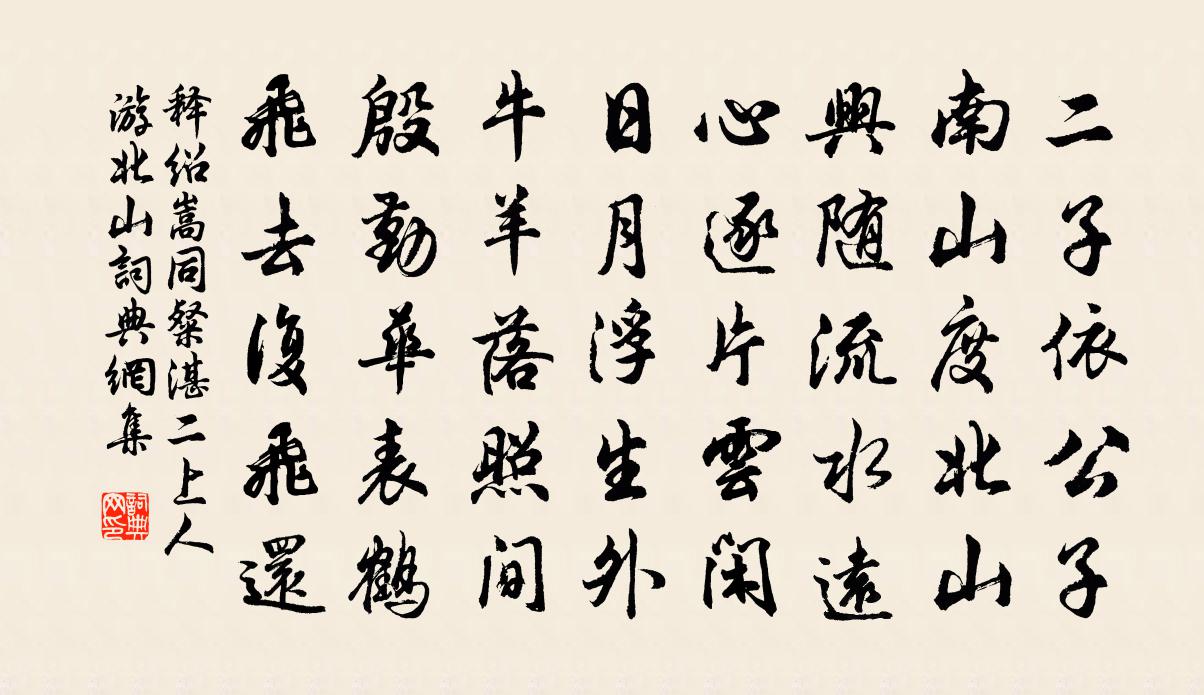 二子依公子
南山度北山
興随流水遠
心逐片雲闲
日月浮生外
牛羊落照间
殷勤華表鹤
飛去復飛還
释紹嵩同粲湛二上人
游北山詞典網集
詞典网印